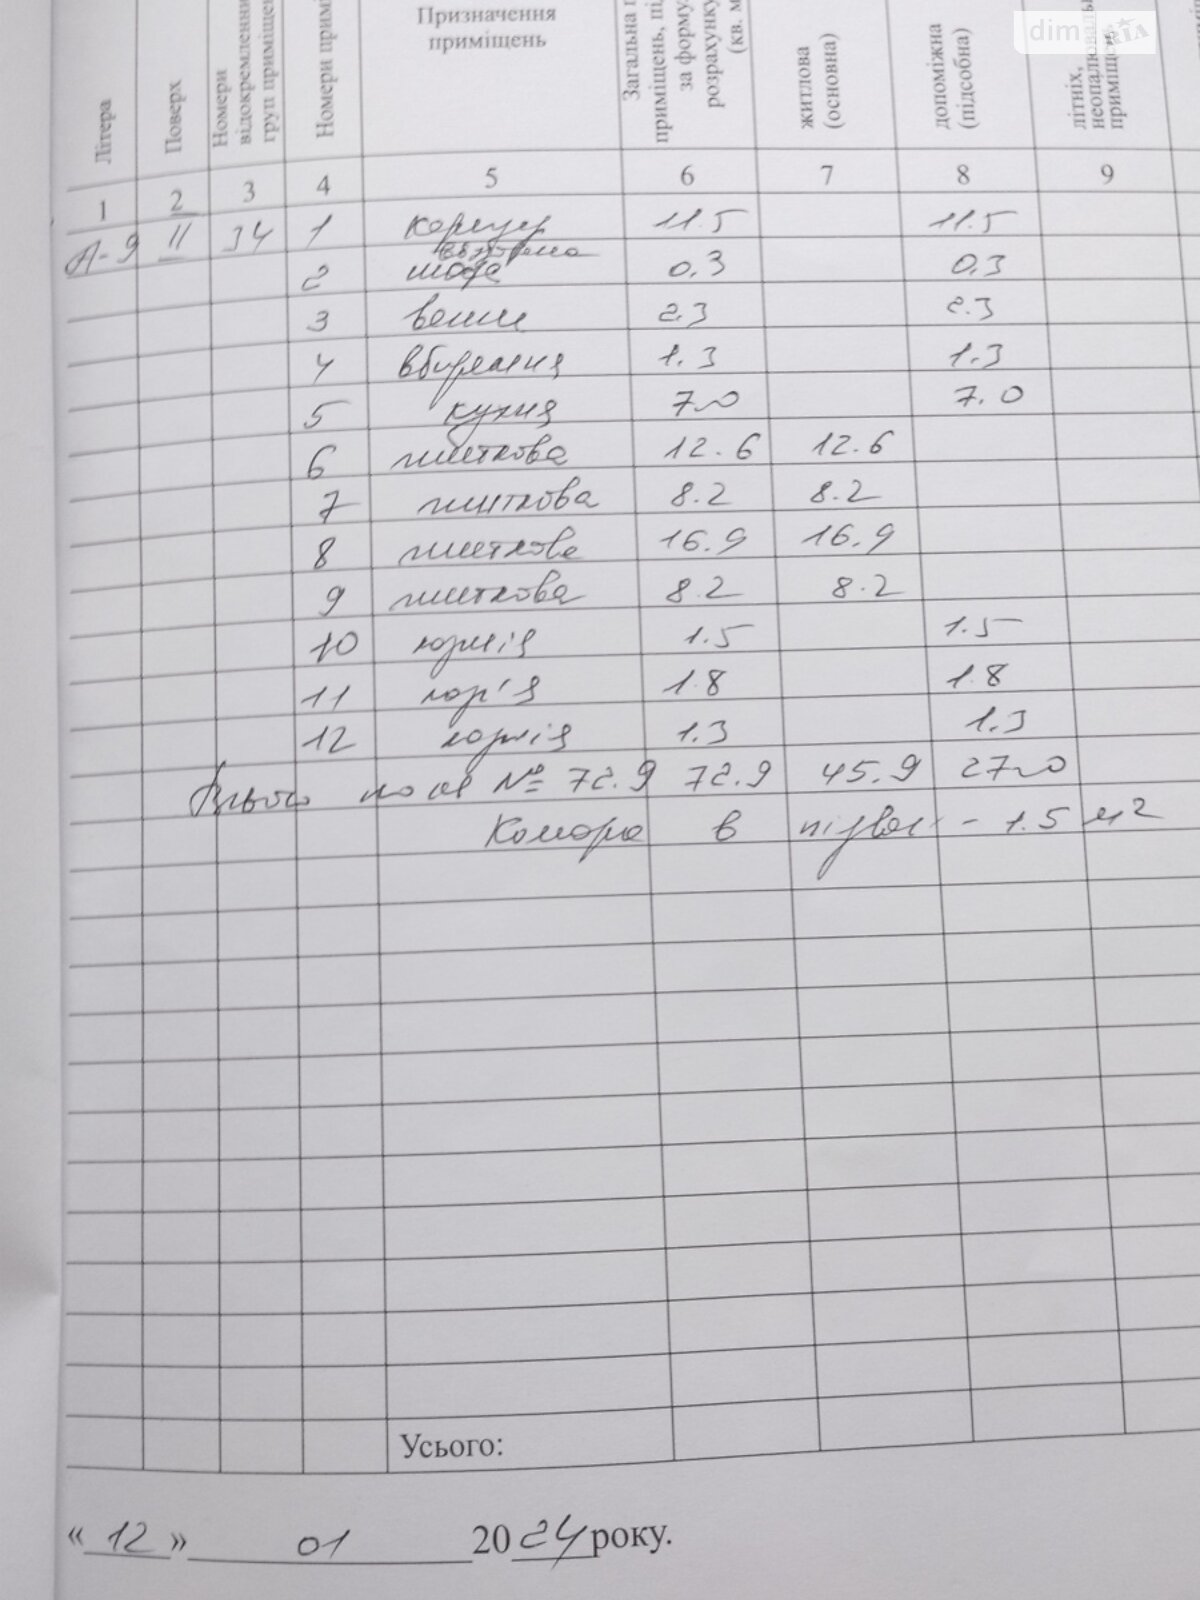 dim RIA
Літера
Поверх
Номери відокремлених груп приміщень
Номери
Призначення приміщень
Загальна
приміщень,
за
розрахунку
(кв. м
житлова (основна)
допоміжна (підсобна)
літніх,
1 2 3 4 5 6 7 8 9
А-9 II 34 1 коридор 11.5 11.5
вбудована
2 шафа 0.3 0.3
3 ванна 2.3 2.3
4 вбиральня 1.3 1.3
5 кухня 7.0 7.0
6 житлова 12.6 12.6
7 житлова 8.2 8.2
8 житлова 16.9 16.9
9 житлова 8.2 8.2
10 лоджія 1.5 1.5
11 1.8 1.8
12 лоджія 1.3 1.3
Всього по кв № 72.9 72.9 45.9 27.0
Комора в - 1.5 м2
Усього:
« 12 » 01 2024 року.